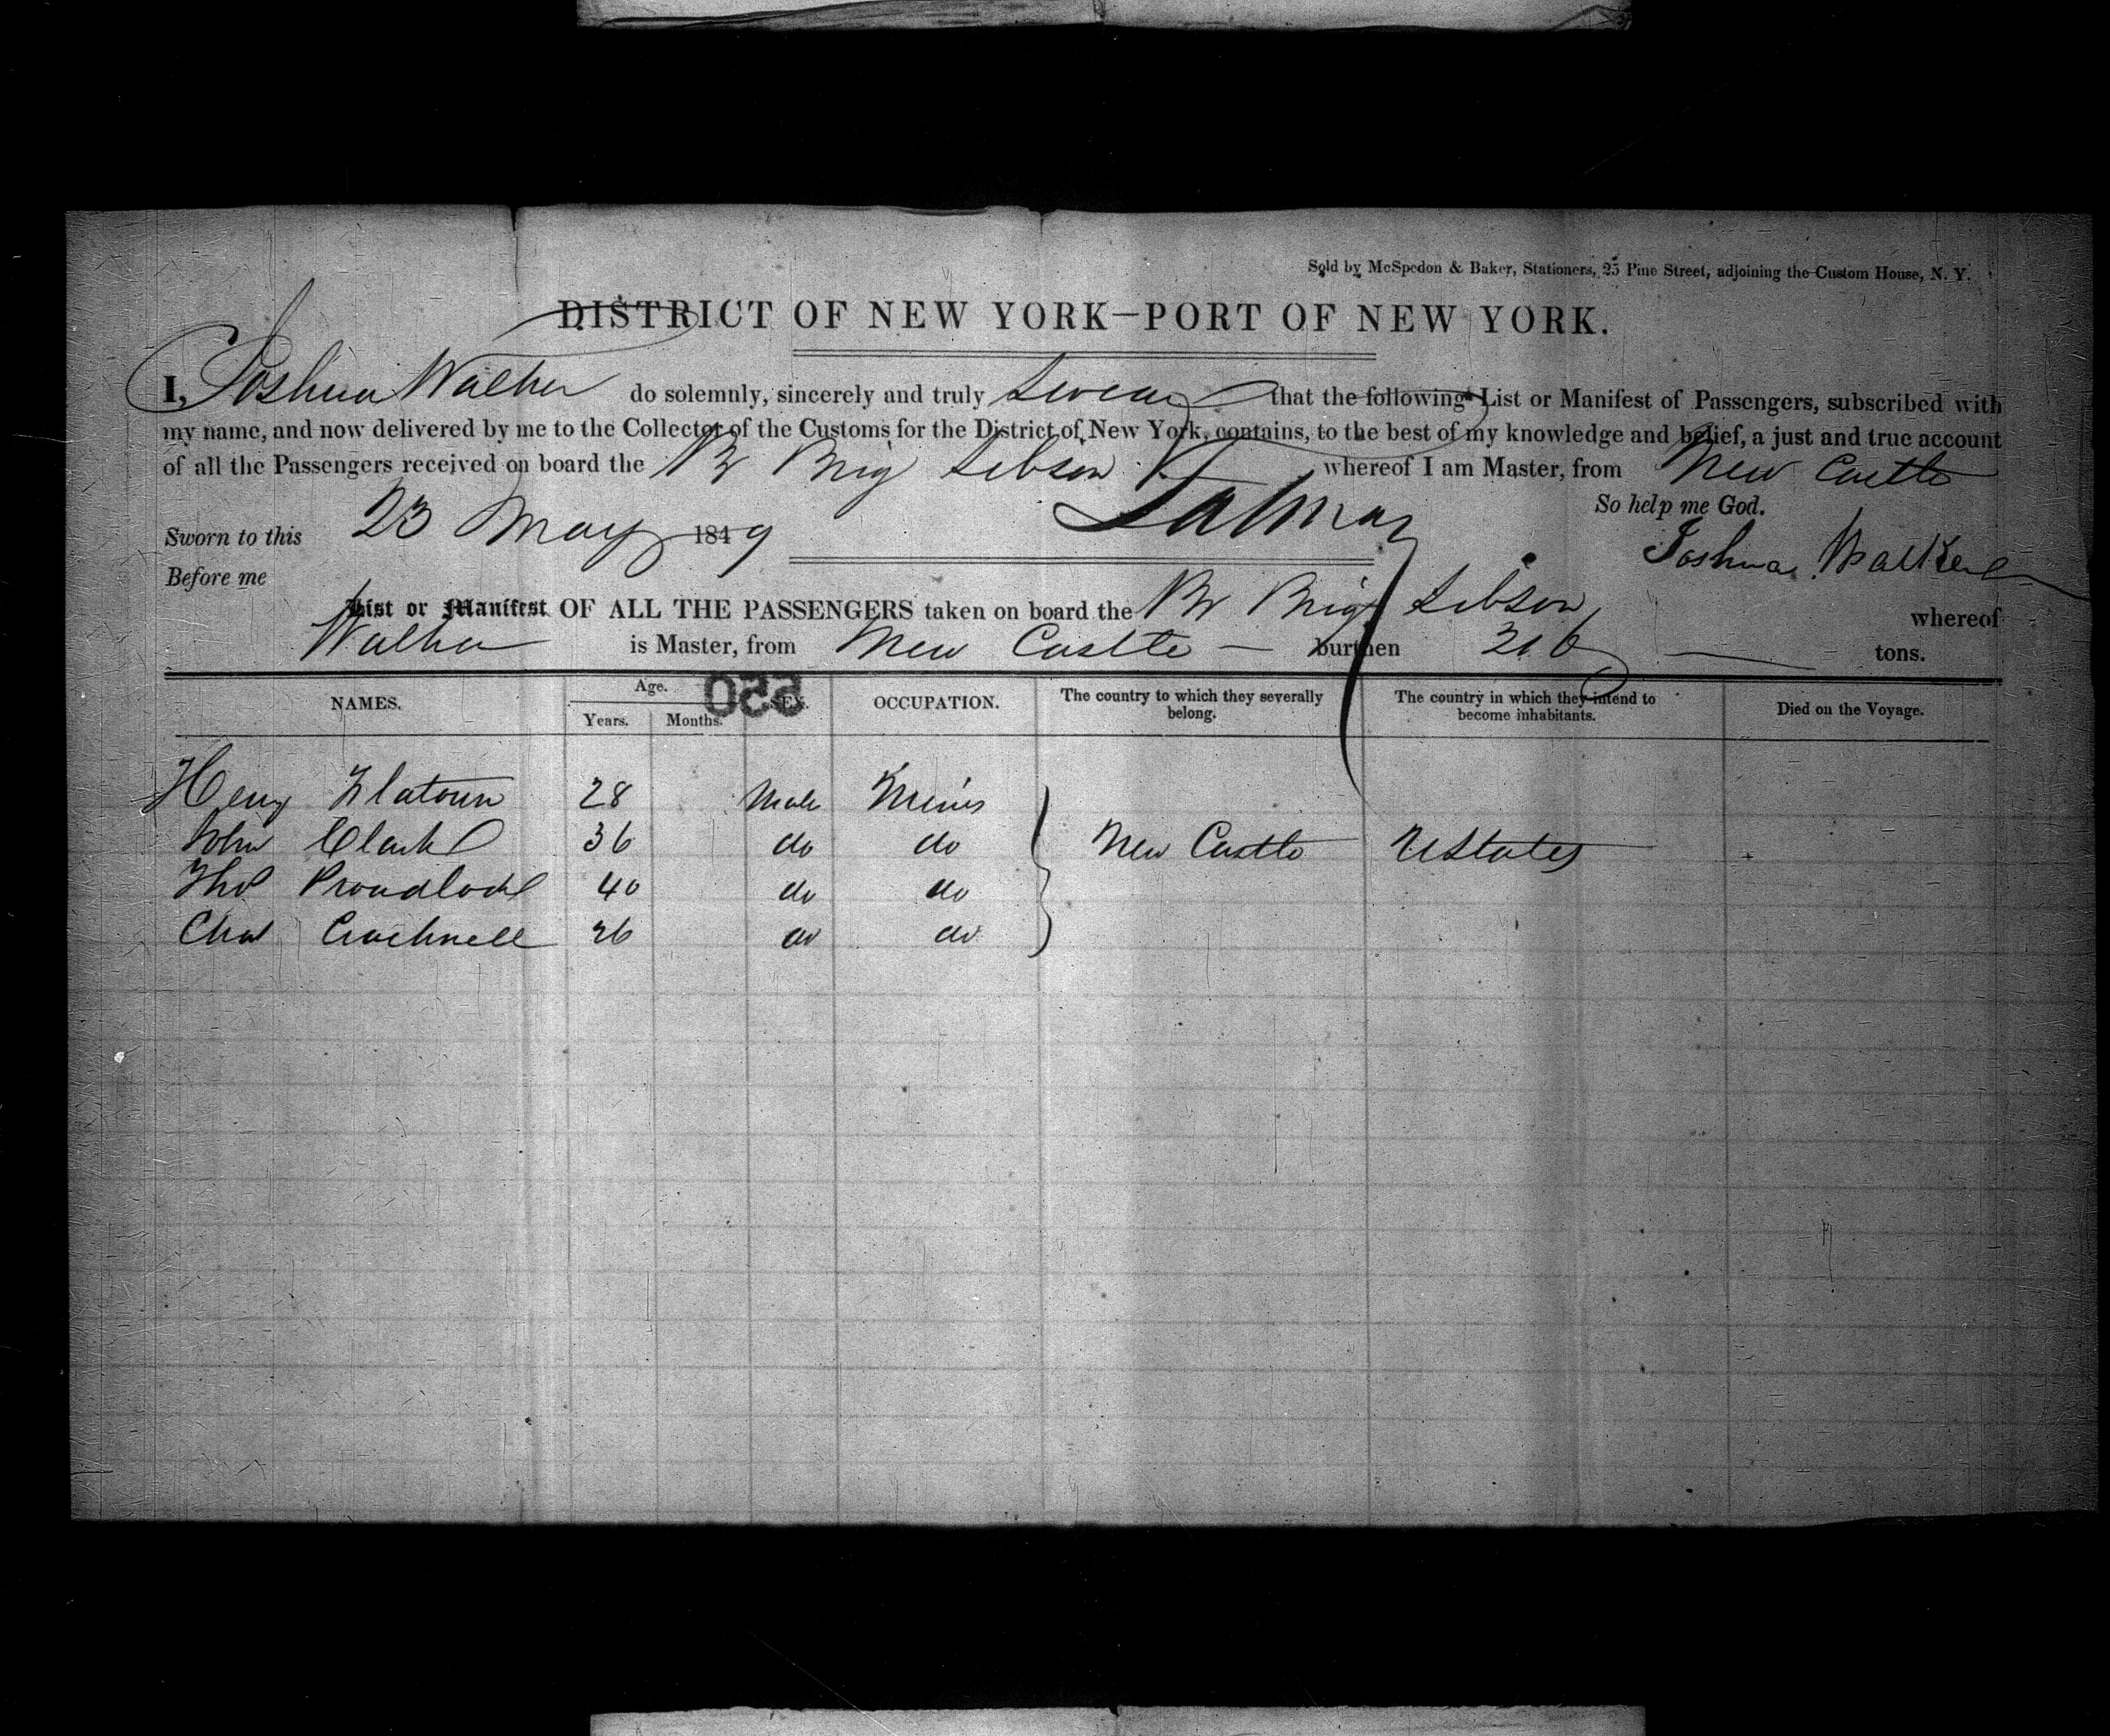 Sold by McSpedon & Baker, Stationers, 25 Pine Street, adjoining the Custom House, N. Y.
DISTRICT OF NEW YORK—PORT OF NEW YORK.
I, Joshua Walker do solemnly, sincerely and truly Swear that the following List or Manifest of Passengers, subscribed with
my name, and now delivered by me to the Collector of the Customs for the District of New York, contains, to the best of my knowledge and belief, a just and true account
of all the Passengers received on board the Br Brig Sibson whereof I am Master, from New Castle
So help me God.
Sworn to this 23 May 1849
Joshua Walker
Before me
List or Manifest OF ALL THE PASSENGERS taken on board the Br Brig Sibson whereof
Walker is Master, from New Castle — burthen 316 tons.
550
NAMES. Age. SEX. OCCUPATION. The country to which they severally belong. The country in which they intend to become inhabitants. Died on the Voyage.
Years. Months.
Henry 28 Male
John Clark 36 do do New Castle UStates
Thos Proudlock 40 do do
Chas Cracknell 26 do do